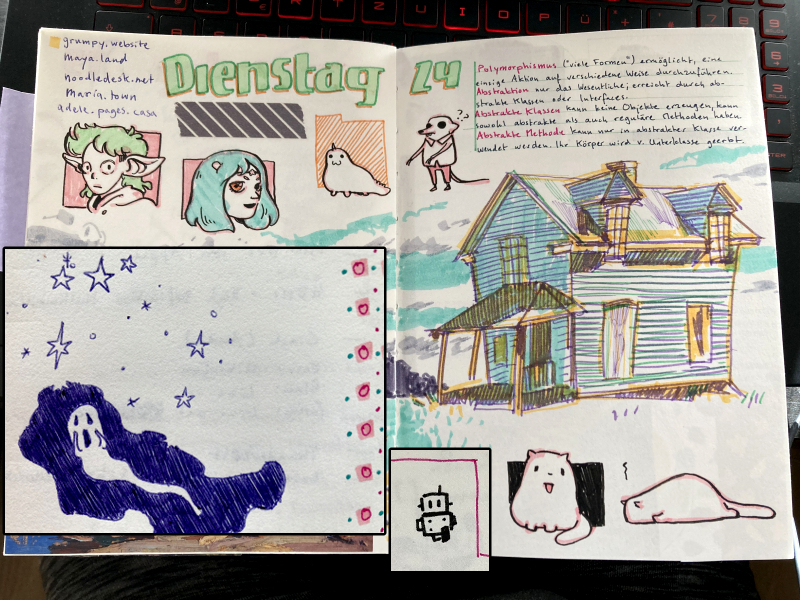 grumpy.website
maya.land
noodledesk.net
maria.town
adele.pages.casa
Dienstag 24
Polymorphismus ("viele Formen") ermöglicht, eine
einzige Aktion auf verschiedene Weise durchzuführen.
Abstraktion nur das Wesentliche; erreicht durch ab-
strakte Klassen oder Interfaces.
Abstrakte Klassen kann keine Objekte erzeugen, kann
sowohl abstrakte als auch reguläre Methoden haben
Abstrakte Methode kann nur in abstrakter Klasse ver-
wendet werden. Ihr Körper wird v. Unterklasse geerbt.
??